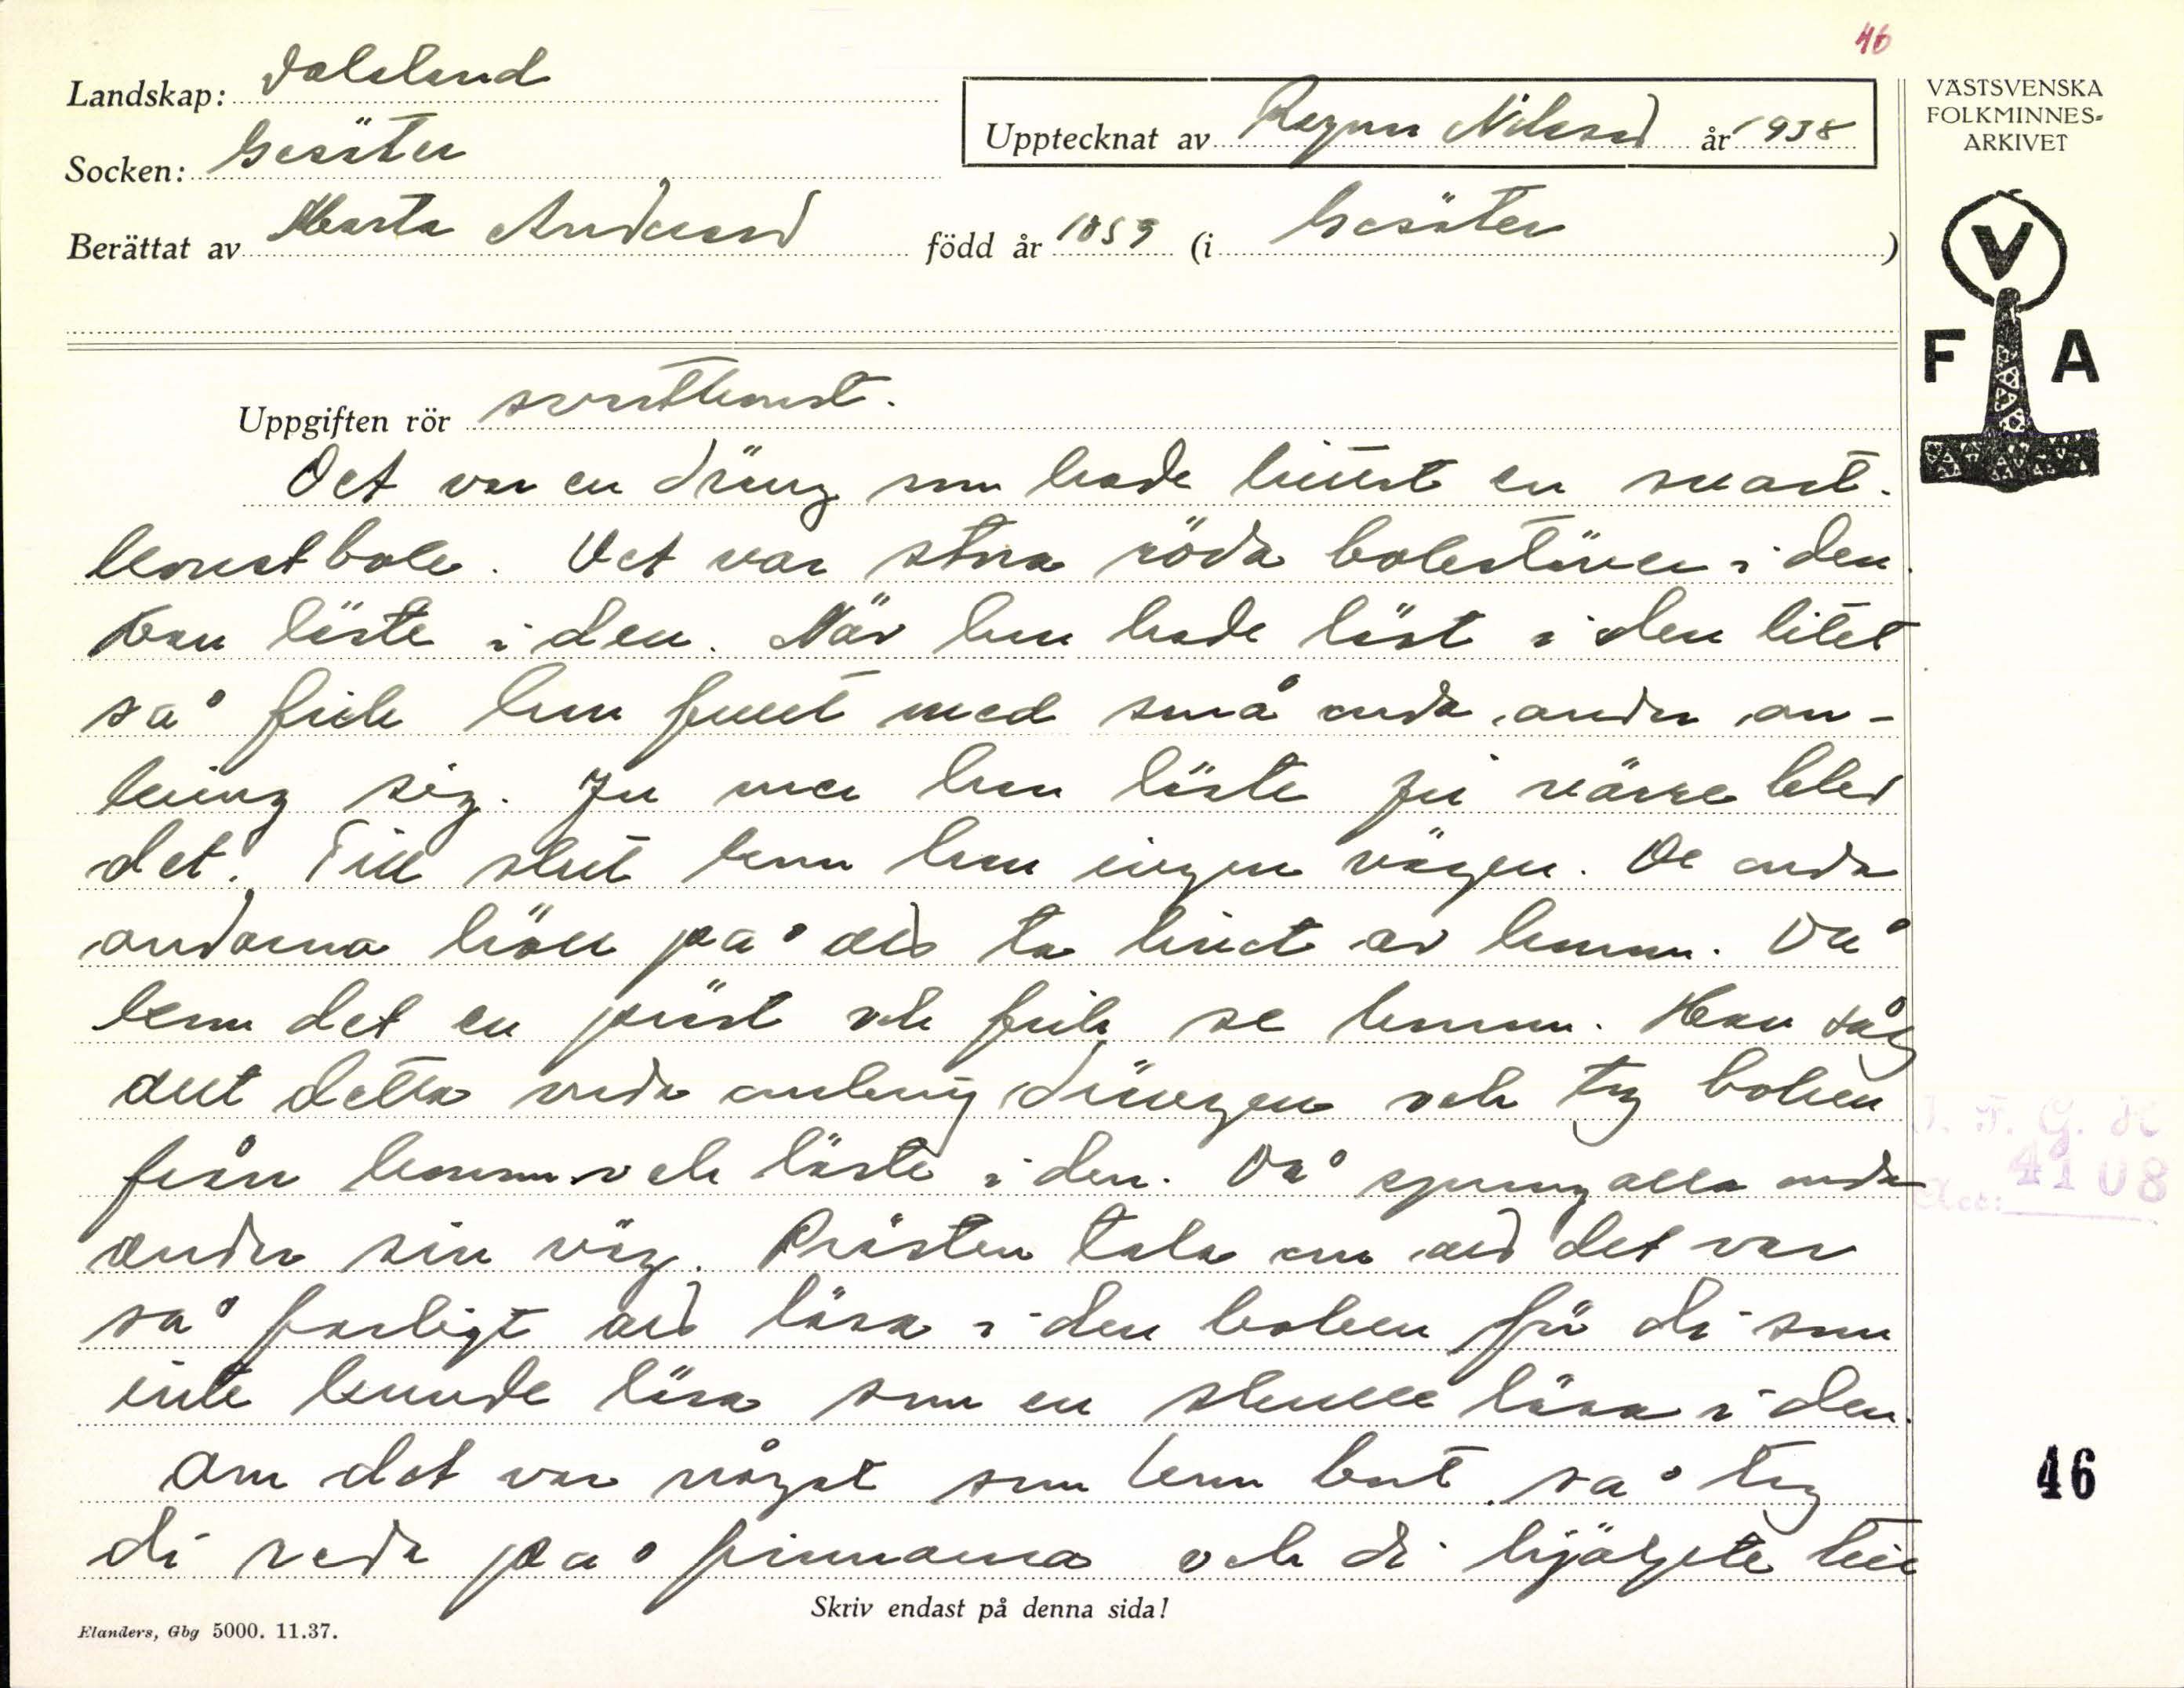 46
Landskap: Dalsland
Socken: Gesäter
Berättat av Marta Andersson
Upptecknat av Ragnar Nilsson år 1938
född år 1859 (i Gesäter)
VÄSTSVENSKA
FOLKMINNES-
ARKIVET
V
F A
Uppgiften rör svartkonst.
Det var en dräng som hade hittat en svart-
konstbok. Det var stora röda bokstäver i den
Han läste i den. När han hade läst i den litet
så fick han fullt med små onda andar om-
kring sig. Ju mer han läste ju värre blev
det. Till slut kom han ingen vägen. De onda
andarna höll på att ta livet av honom. Då
kom det en präst och fick se honom. Han såg
allt detta onda omkring drängen och tog boken
från honom och läste i den. Då sprang alla onda
andar sin väg. Prästen tala om att det var
så farligt att läsa i den boken för di som
inte kunde läsa som en skulle läsa i den.
Om det var något som kom bort så tog
di reda på finnarna och di hjälpte till
Skriv endast på denna sida!
Elanders, Gbg 5000. 11.37.
I. F. G. H
Acc: 4108
46